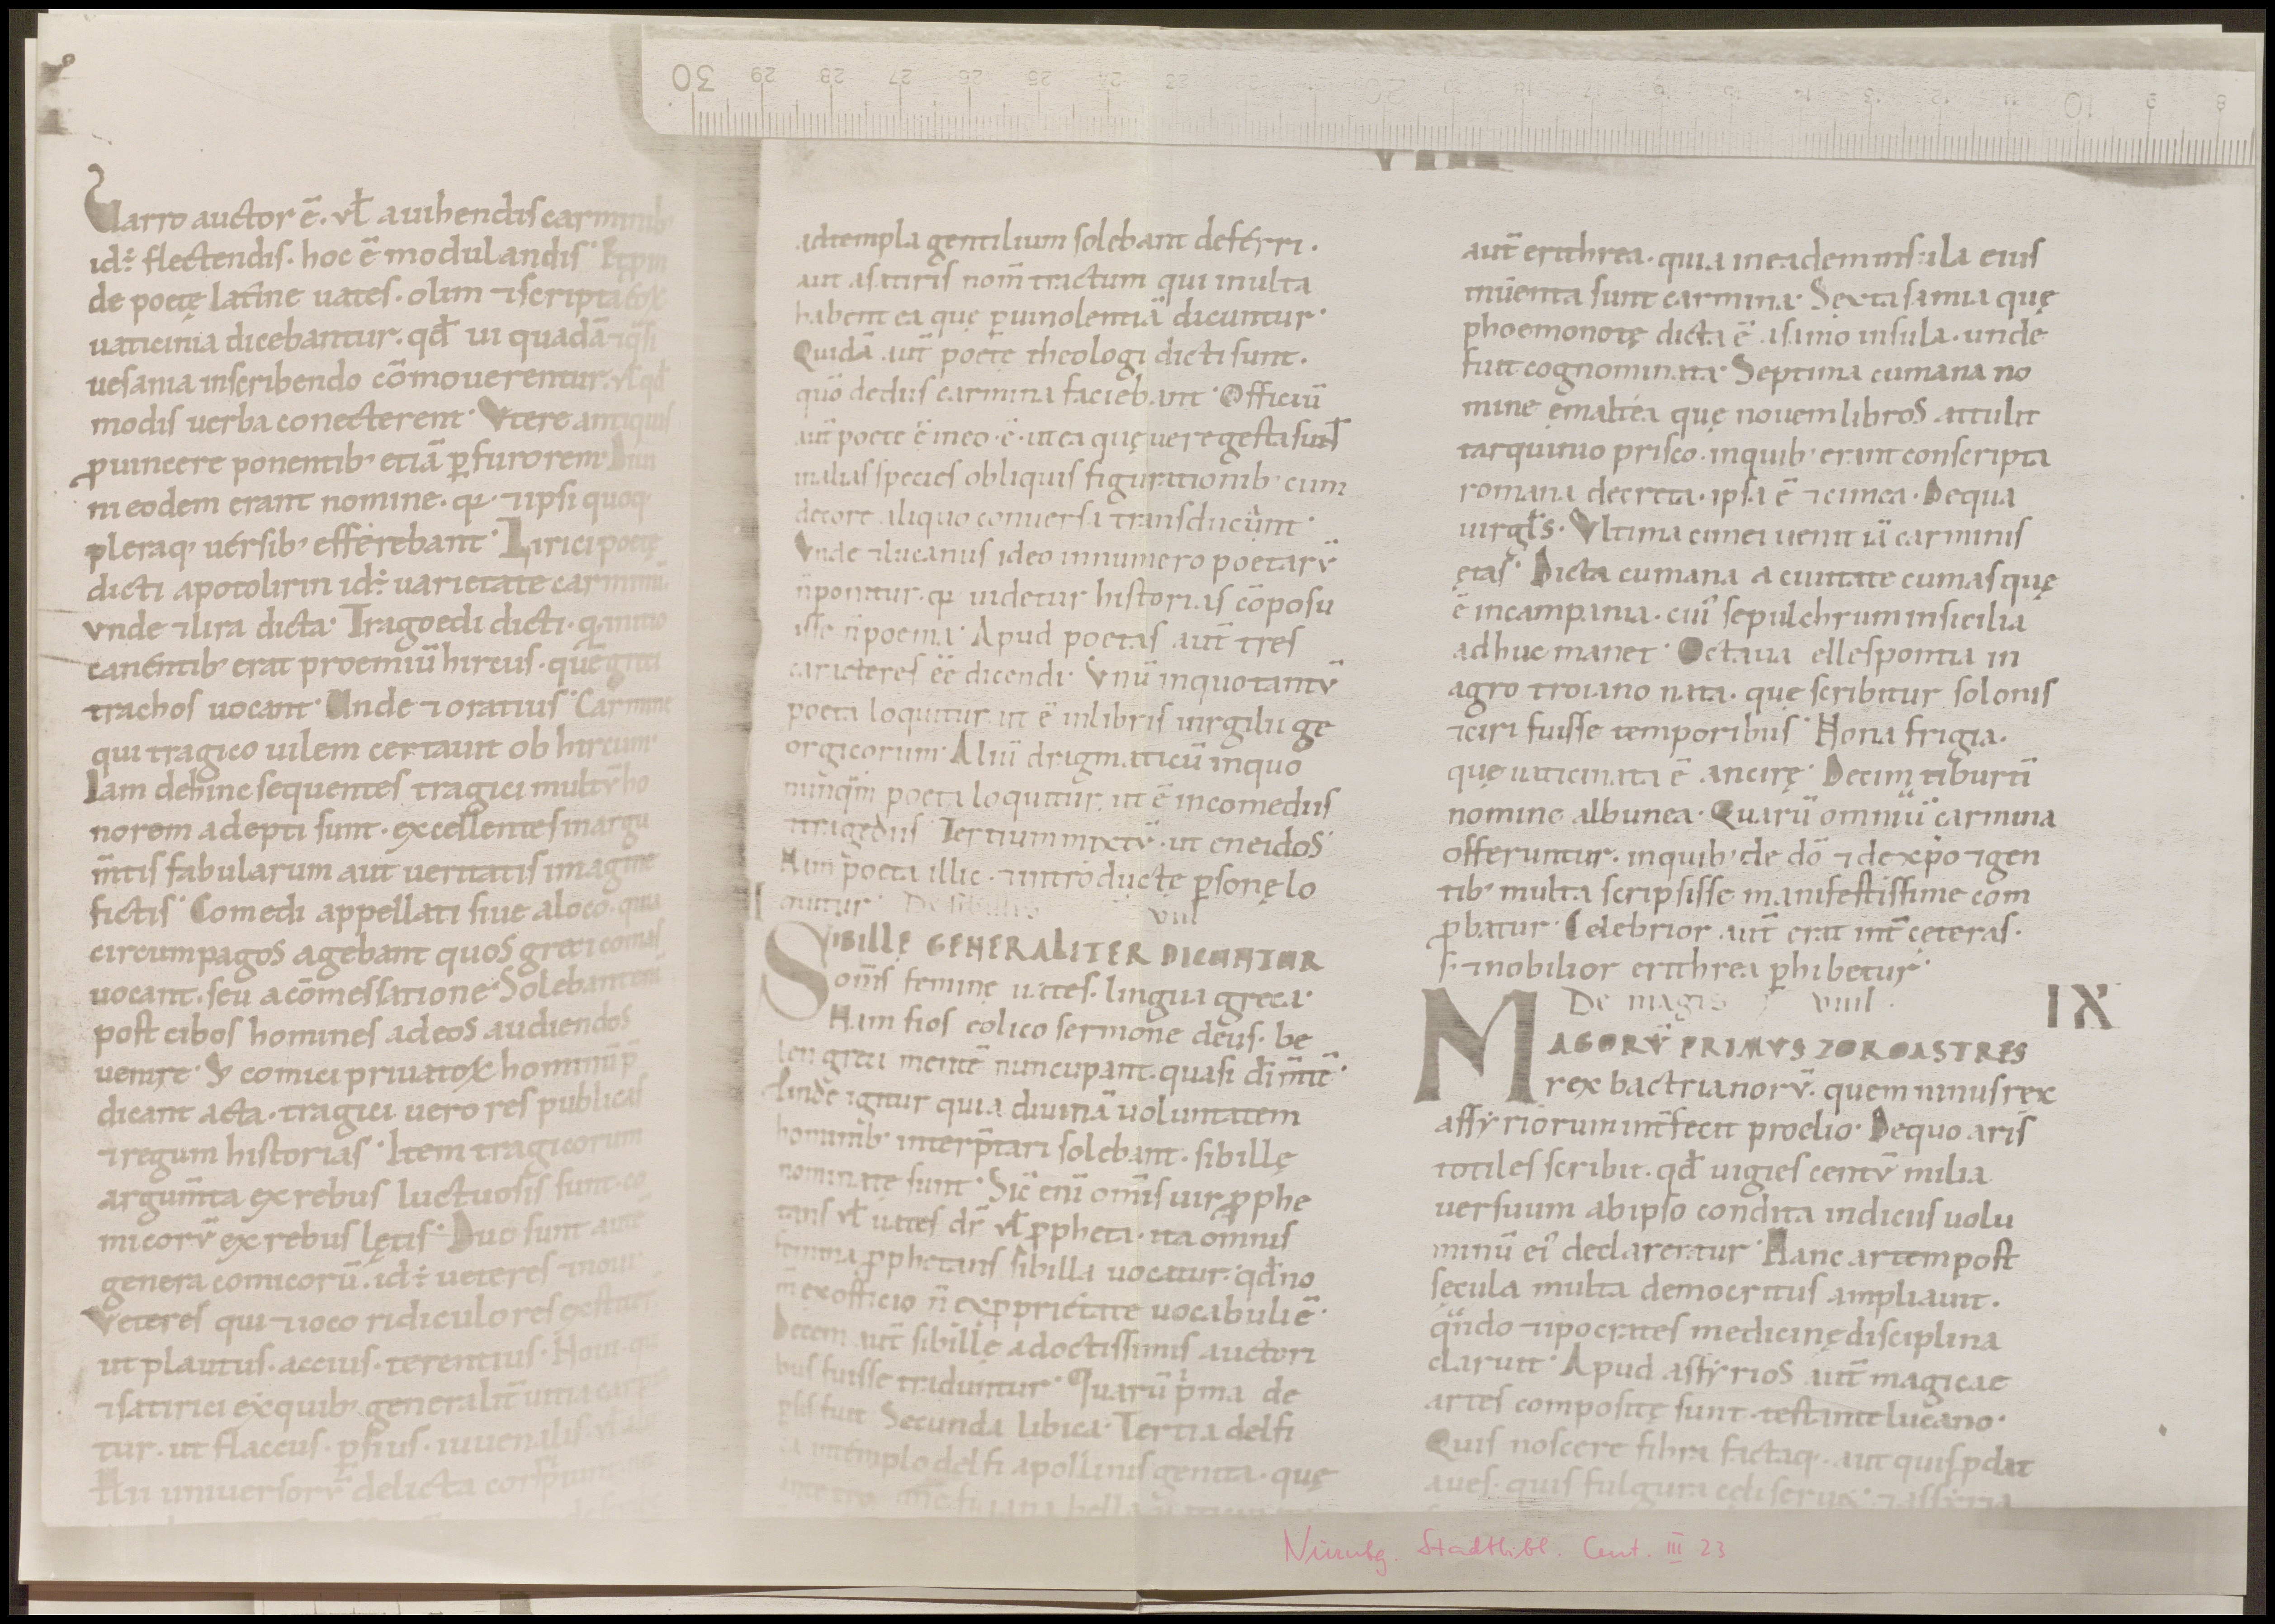 30 29 28 27 26 25 24 20 10 9 8
Varro auctor ē. vł auihendis carminib'
id÷ flectendis. hoc ē modulandis.
de poetę latine uates. olim ⁊ scripta
uaticinia dicebantur. qđ ui quadā ⁊
uesania inscribendo cōmouerentur. vł qđ
modis uerba conecterent. Vtere antiquis
ꝓuincere ponentib' etiā ꝑfurorem.
ni eodem erant nomine. ⁊ ipsi quoq.
pleraq' uérsib' efferebant. Lirici poetę
dicti apotolirin id÷ uarietate carminū.
vnde ⁊ lira dicta. Tragoedi dicti. initio
canéntib' erat proemiū hircus. quē greci
trachos uocant. Unde ⁊ oratius. Carmine
qui tragico uilem certauit ob hircum.
Iam dehinc sequentes tragici multū ho
norem adepti sunt. excellentes inargu
m̄tis fabularum aut ueritatis imagine
fictis. Comedi appellati siue aloco. quia
circumpagos agebant quos greci comas
uocant. seu acōmessatione. Solebant enī
post cibos homines adeos audiendos
uenire. comici priuatoꝝ hominū p̄
dicant acta. tragici uero res publicas
⁊ regum historias. Item tragicorum
argum̄ta ex rebus luctuosis sunt. co
micorū ex rebus lętis. Duo sunt autē
genera comicorū. id÷ ueteres ⁊ noui.
Veteres qui ⁊ ioco ridiculores
ut plautus. accius. terentius. Noui. qui
⁊ satirici exquib' generalit̄ uitia
tur. ut flaccus. ꝑsius. iuuenalis. vł
Hii uniuersorū delicta corripiunt.
adtempla gentilium solebant deférri.
aut asatiris nom̄ tractum qui multa
habent ea quę ꝑuinolentiā dicuntur.
Quidā aut̄ poetę theologi dicti sunt.
quō dediis carmina faciebant. Officiū
aut̄ poete ē ineo. ē. ut ea quę uere gesta sunt
inalias species obliquis figurationib' cum
decore aliquo conuersa transducunt.
Vnde ⁊ lucanus ideo innumero poetarū
n̄ponitur. uidetur historias cōposu
isse n̄ poema. Apud poetas aut̄ tres
caracteres ēē dicendi. Vnū inquo tantū
poeta loquitur ut ē inlibris uirgilii ge
orgicorum. Aliū dragmaticū inquo
nunq̄m poeta loquitur. ut ē incomediis
⁊ tragediis. Tertium mixtū. ut eneidos.
Nam poeta illic. ⁊ introductę ꝑsonę lo
quitur. De sibillis VIII
SIBILLĘ GENERALITER DICUNTUR
om̄s feminę uates. lingua greca.
Nam sios eolico sermone deus. be
len greci mentē nuncupant. quasi di m̄tē.
Unde igitur quia diuinā uoluntatem
hominib' interp̄tari solebant. sibillę
nominate sunt. Sic enī om̄is uir ꝓphe
tans vł uates dr̄ vł ꝓpheta. ita omnis
femina ꝓphetans sibilla uocatur. qđ no
m̄ exofficio n̄ exꝓprietate uocabuli ē.
Decem aut̄ sibillę adoctissimis auctori
bus fuisse traduntur. Quarū p̄ma de
ꝑsis fuit Secunda libica. Tertia delfi
ca intemplo delfi apollinis genita. quę
aut̄ erithrea. quia ineadem insula eius
inuenta sunt carmina. Sexta samia quę
phoemonotę dicta ē asamo insula. unde
fuit cognominata. Septima cumana no
mine ęmaltéa quę nouem libros attulit
tarquinio prisco. inquib' erant conscripta
romana decreta. ipsa ē ⁊ cimea. Dequa
uirgl̄s. Vltima cimei uenit iā carminis
ętas. Dicta cumana aciuitate cumas quę
ē incampania. cui' sepulchrum insicilia
adhuc manet. Octaua ellespontia in
agro troiano nata. quę scribitur solonis
⁊ ciri fuisse temporibus. Nona frigia.
quę uaticinata ē ancirę. Decima tiburtī
nomine albunea. Quarū omniū carmina
offeruntur. inquib' de dō ⁊ dexp̄o ⁊ gen
tib' multa scripsisse manifestissime com
ꝓbatur. Celebrior aut̄ erat int̄ ceteras.
s. ⁊ nobilior erithrea ꝑhibetur.
De magis VIIII.
IX
MAGORŪ PRIMVS ZOROASTRES
rex bactrianorū. quem ninus rex
assyriorum int̄fecit proelio. Dequo aris
totiles scribit. qđ uigies centū milia
uersuum abipso condita indiciis uolu
minū ei' declarentur. Hanc artem post
sęcula multa democritus ampliauit.
q̄ndo ⁊ ipocrates medicinę disciplina
claruit. Apud assyrios aut̄ magicae
artes compositę sunt. testante lucano.
Quis noscere fibra factaq. aut quis p̄dat
aues. quis fulgura cęli seruꝫ. ⁊ assyria
Nürnbg. Stadtbibl. Cent. III 23